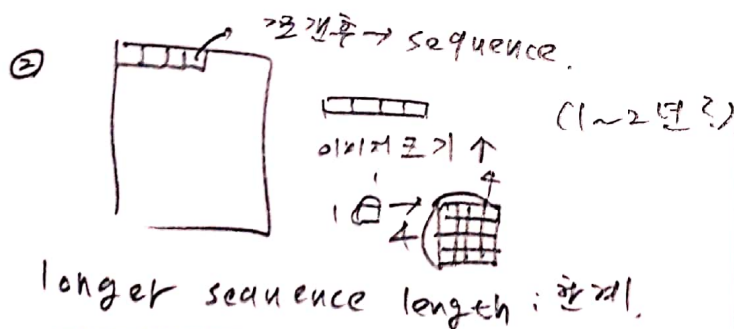 ② 조갠후 → sequence.
(1~2년?)
이미지 크기 ↑
1
4
1 → 4
longer sequence length : 한계.